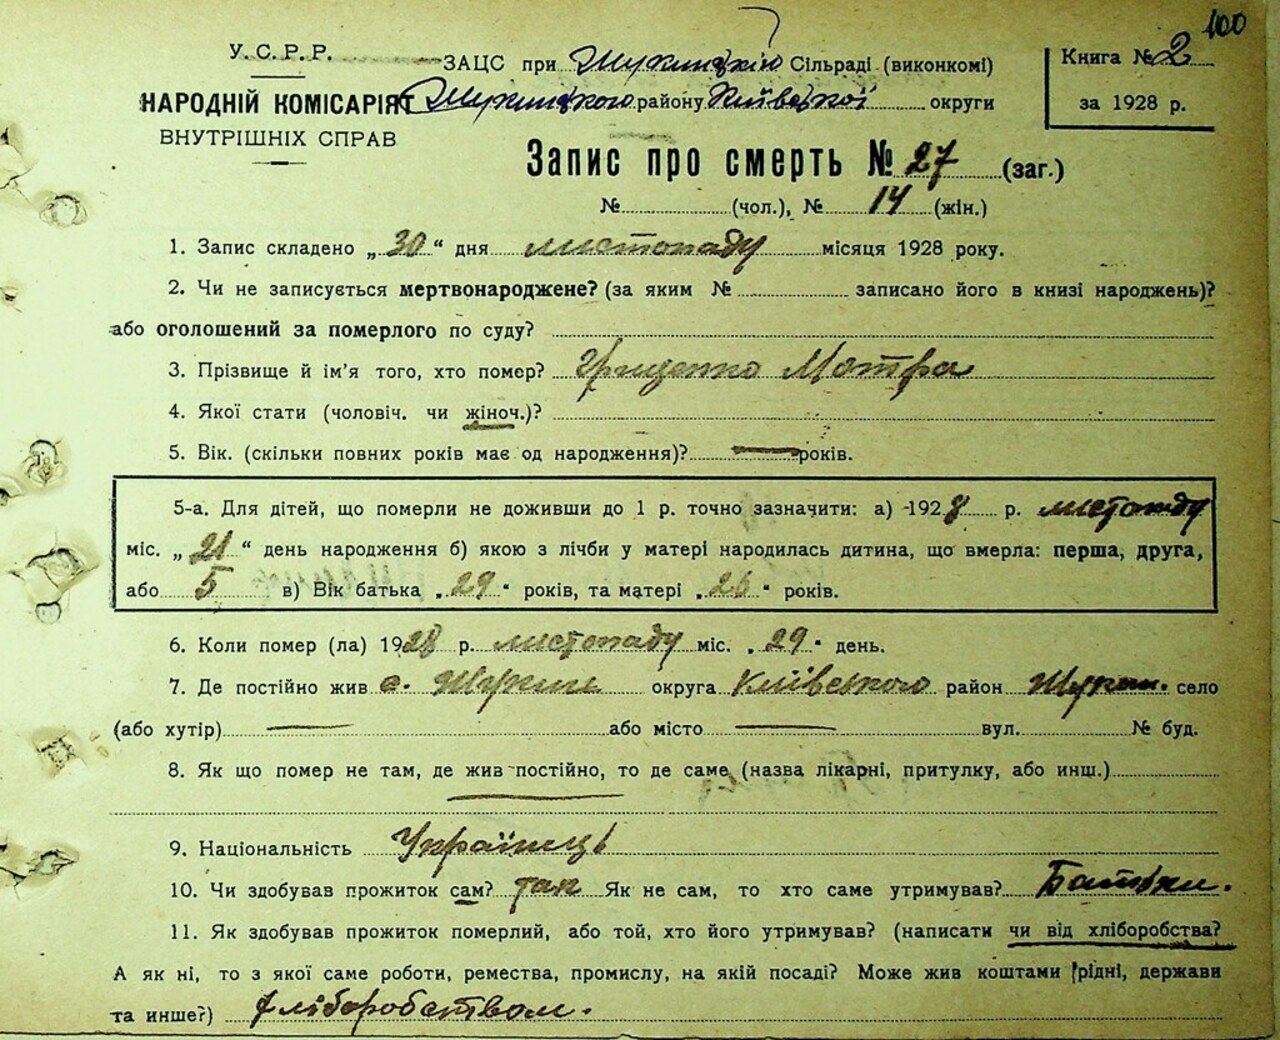 100
У.С.Р.Р.
НАРОДНІЙ КОМІСАРІЯТ
ВНУТРІШНІХ СПРАВ
ЗАЦС при Сільраді (виконкомі)
району Київської округи
Книга № 2
за 1928 р.
Запис про смерть № 27 (заг.)
№ (чол.), № 14 (жін.)
1. Запис складено „30“ дня листопаду місяця 1928 року.
2. Чи не записується мертвонароджене? (за яким № записано його в книзі народжень)?
або оголошений за померлого по суду?
3. Прізвище й ім'я того, хто помер? Грищенко Мотря
4. Якої стати (чоловіч. чи жіноч.)?
5. Вік. (скільки повних років має од народження)? — років.
5-а. Для дітей, що померли не доживши до 1 р. точно зазначити: а) 1928 р. листопаду
міс. „21“ день народження б) якою з лічби у матері народилась дитина, що вмерла: перша, друга,
або 5 в) Вік батька „29“ років, та матері „26“ років.
6. Коли помер (ла) 1928 р. листопаду міс. „29“ день.
7. Де постійно жив с. округа Київського район село
(або хутір) — або місто — вул. № буд.
8. Як що помер не там, де жив постійно, то де саме (назва лікарні, притулку, або инш.)
9. Національність Українець
10. Чи здобував прожиток сам? так Як не сам, то хто саме утримував? Батьки.
11. Як здобував прожиток померлий, або той, хто його утримував? (написати чи від хліборобства?
А як ні, то з якої саме роботи, ремества, промислу, на якій посаді? Може жив коштами рідні, держави
та инше?) Хліборобством.